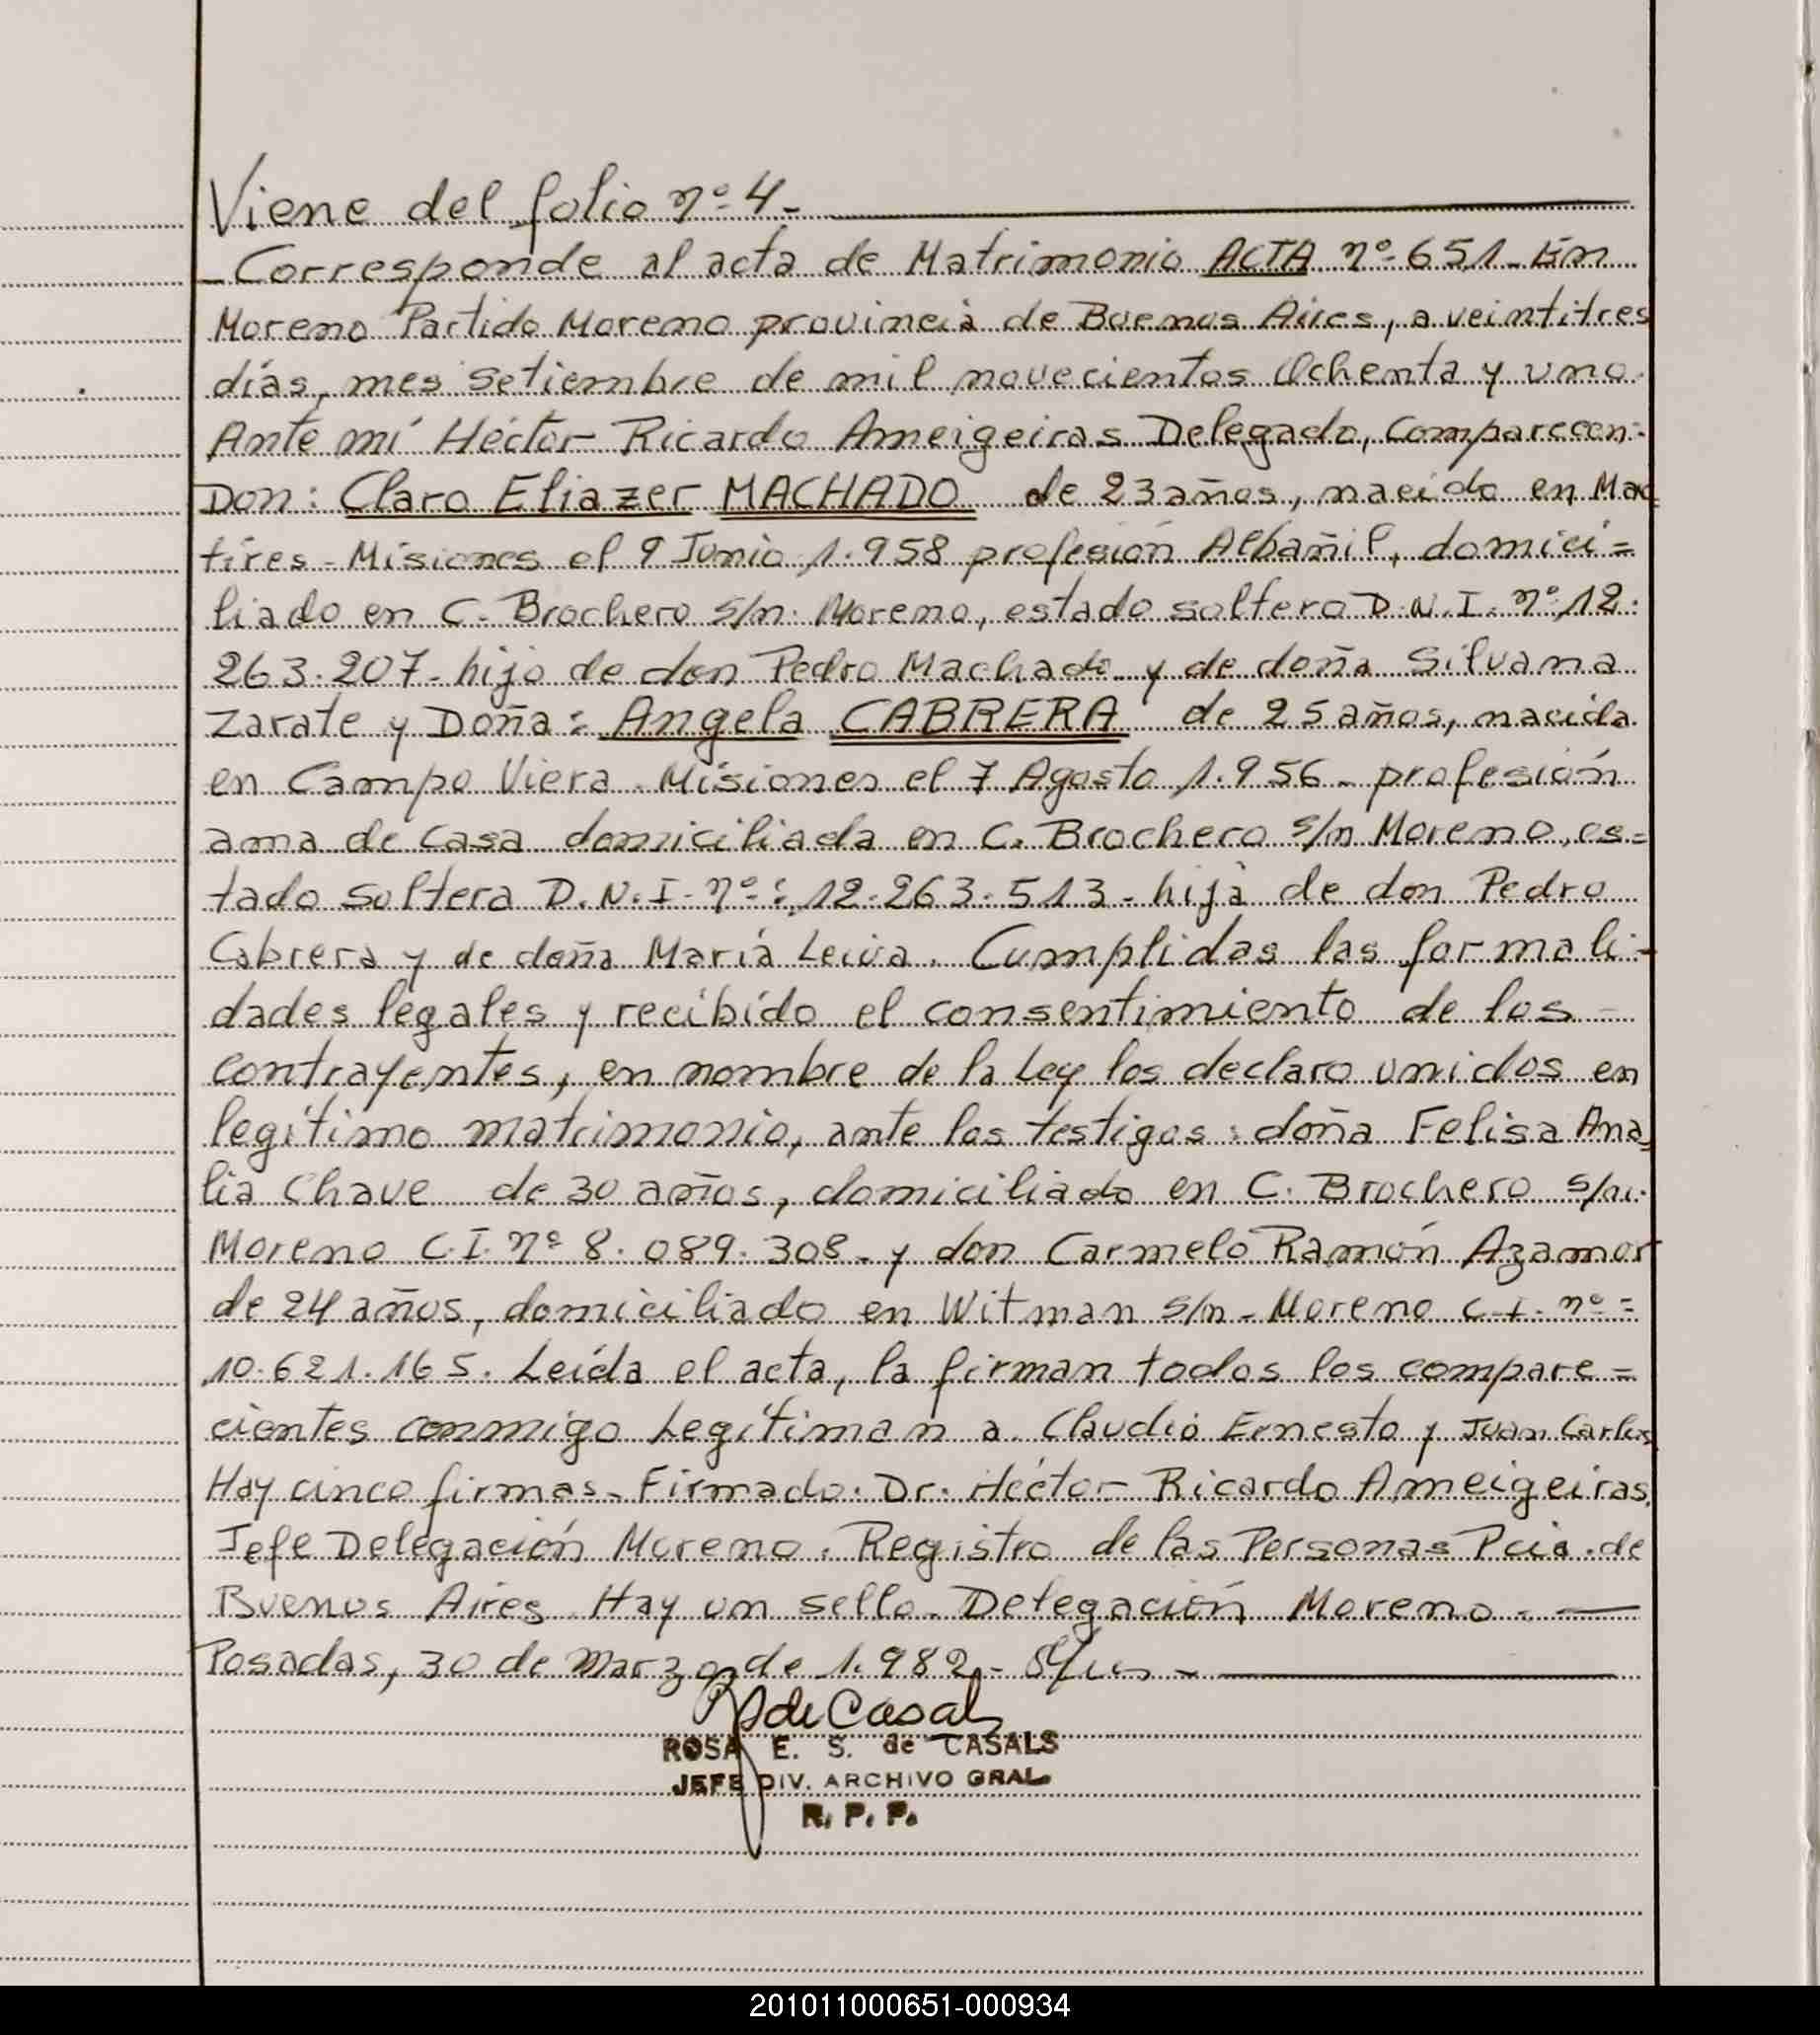 Viene del folio nº 4-
- Corresponde al acta de Matrimonio ACTA nº 651- En
Moreno Partido Moreno provincia de Buenos Aires, a veintitres
días, mes Setiembre de mil novecientos Ochenta y uno.
Ante mí Héctor Ricardo Ameigeiras Delegado, Comparecen:
Don: Claro Eliazer MACHADO de 23 años, nacido en Mar
tires - Misiones el 9 Junio 1.958 profesión Albañil, domici=
liado en C. Brochero s/n. Moreno, estado soltero D.N.I. nº 12.
263.207- hijo de don Pedro Machado y de doña Silvana
Zarate y Doña: Angela CABRERA de 25 años, nacida
en Campo Viera - Misiones el 7 Agosto 1.956- profesión
ama de casa domiciliada en C. Brochero s/n Moreno, es=
tado soltera D.N.I. nº: 12.263.513- hija de don Pedro
Cabrera y de doña María Leiva. Cumplidas las formali-
dades legales y recibido el consentimiento de los -
contrayentes, en nombre de la Ley los declaro unidos en
legítimo matrimonio, ante los testigos: doña Felisa Ana
lia Chave de 30 años, domiciliado en C. Brochero s/n.
Moreno C.I. nº 8.089.308- y don Carmelo Ramón Azamor
de 24 años, domiciliado en Witman s/n - Moreno C.I. nº =
10.621.165. Leída el acta, la firman todos los compare=
cientes conmigo Legitiman a Claudio Ernesto y Juan Carlos
Hay cinco firmas- Firmado. Dr. Héctor Ricardo Ameigeiras
Jefe Delegación Moreno. Registro de las Personas Pcia. de
Buenos Aires. Hay un sello. Delegación Moreno. -
Posadas, 30 de Marzo de 1.982-
de Casals
ROSA E. S. de CASALS
JEFE DIV. ARCHIVO GRAL.
R. P. P.
201011000651-000934